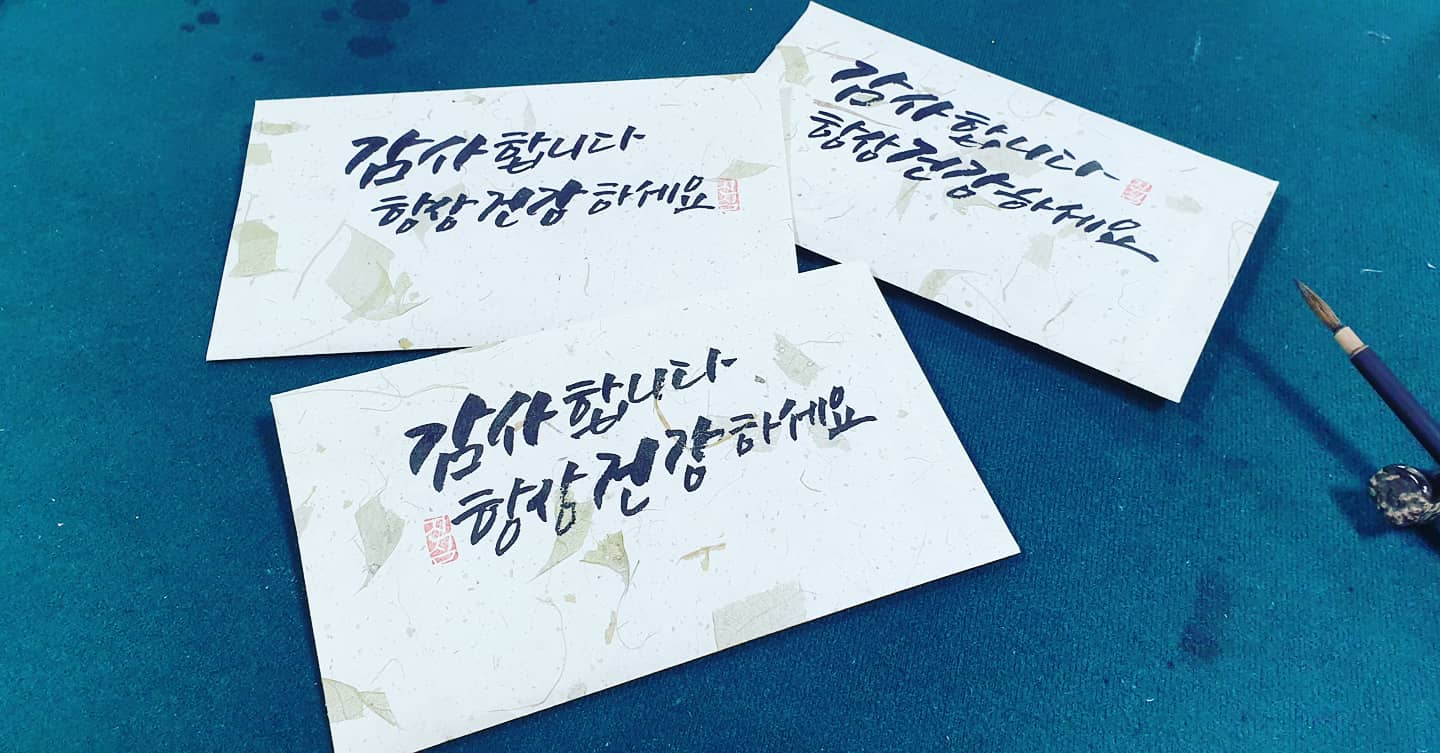 감사합니다
항상 건강하세요
감사합니다
항상 건강하세요
감사합니다
항상 건강하세요